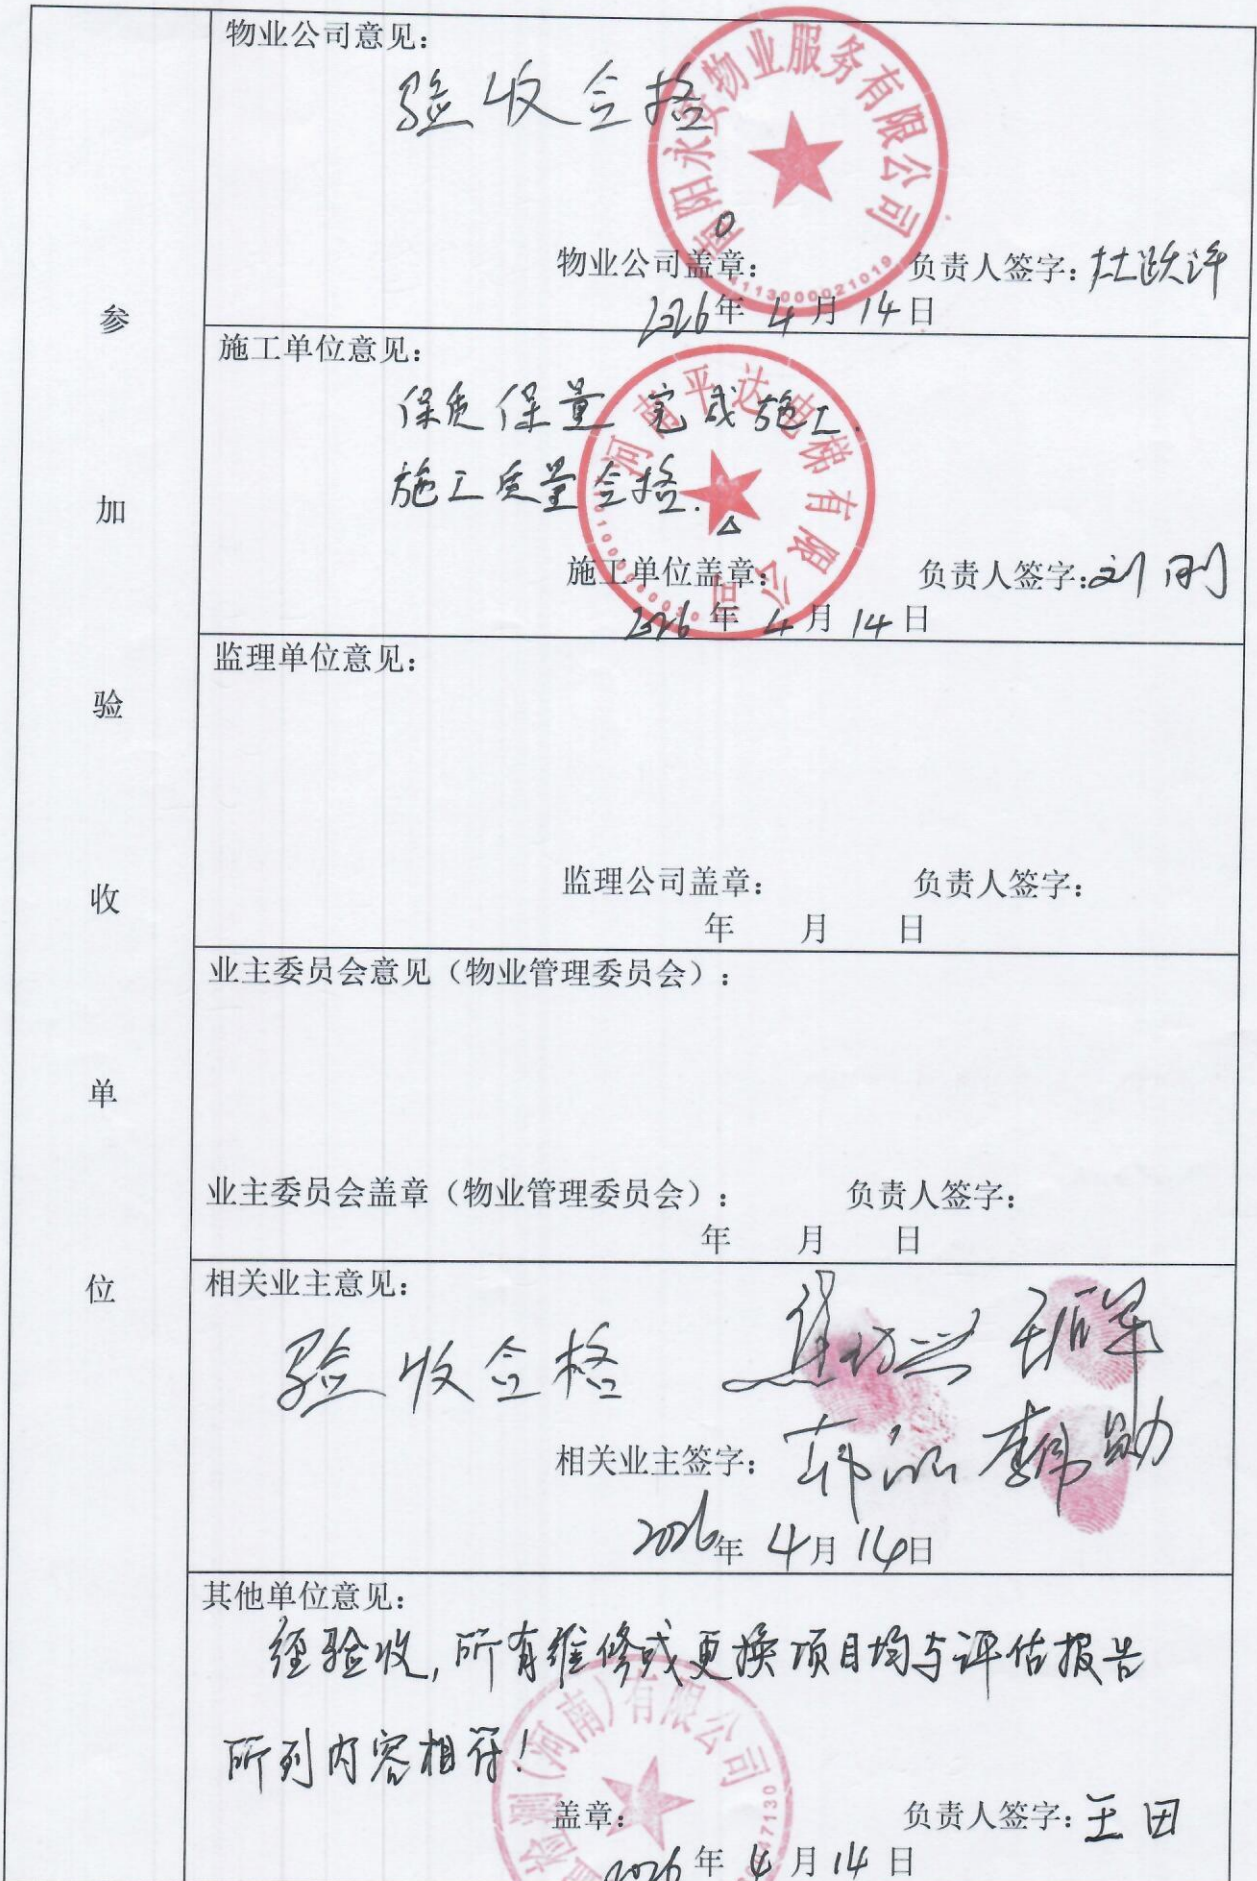 参加验收单位
物业公司意见：
验收合格
南阳永安物业服务有限公司
4113000021019
物业公司盖章： 负责人签字：杜跃许
2026年 4月14日
施工单位意见：
保质保量 完成施工.
施工质量合格.
河南平达电梯有限公司
施工单位盖章： 负责人签字：刘刚
2026年 4月14日
监理单位意见：
监理公司盖章： 负责人签字：
年 月 日
业主委员会意见（物业管理委员会）：
业主委员会盖章（物业管理委员会）： 负责人签字：
年 月 日
相关业主意见：
验收合格
相关业主签字：
2026年 4月14日
其他单位意见：
经验收,所有维修或更换项目均与评估报告
所列内容相符！
检测(河南)有限公司
盖章： 负责人签字：王田
2026年 4月14日